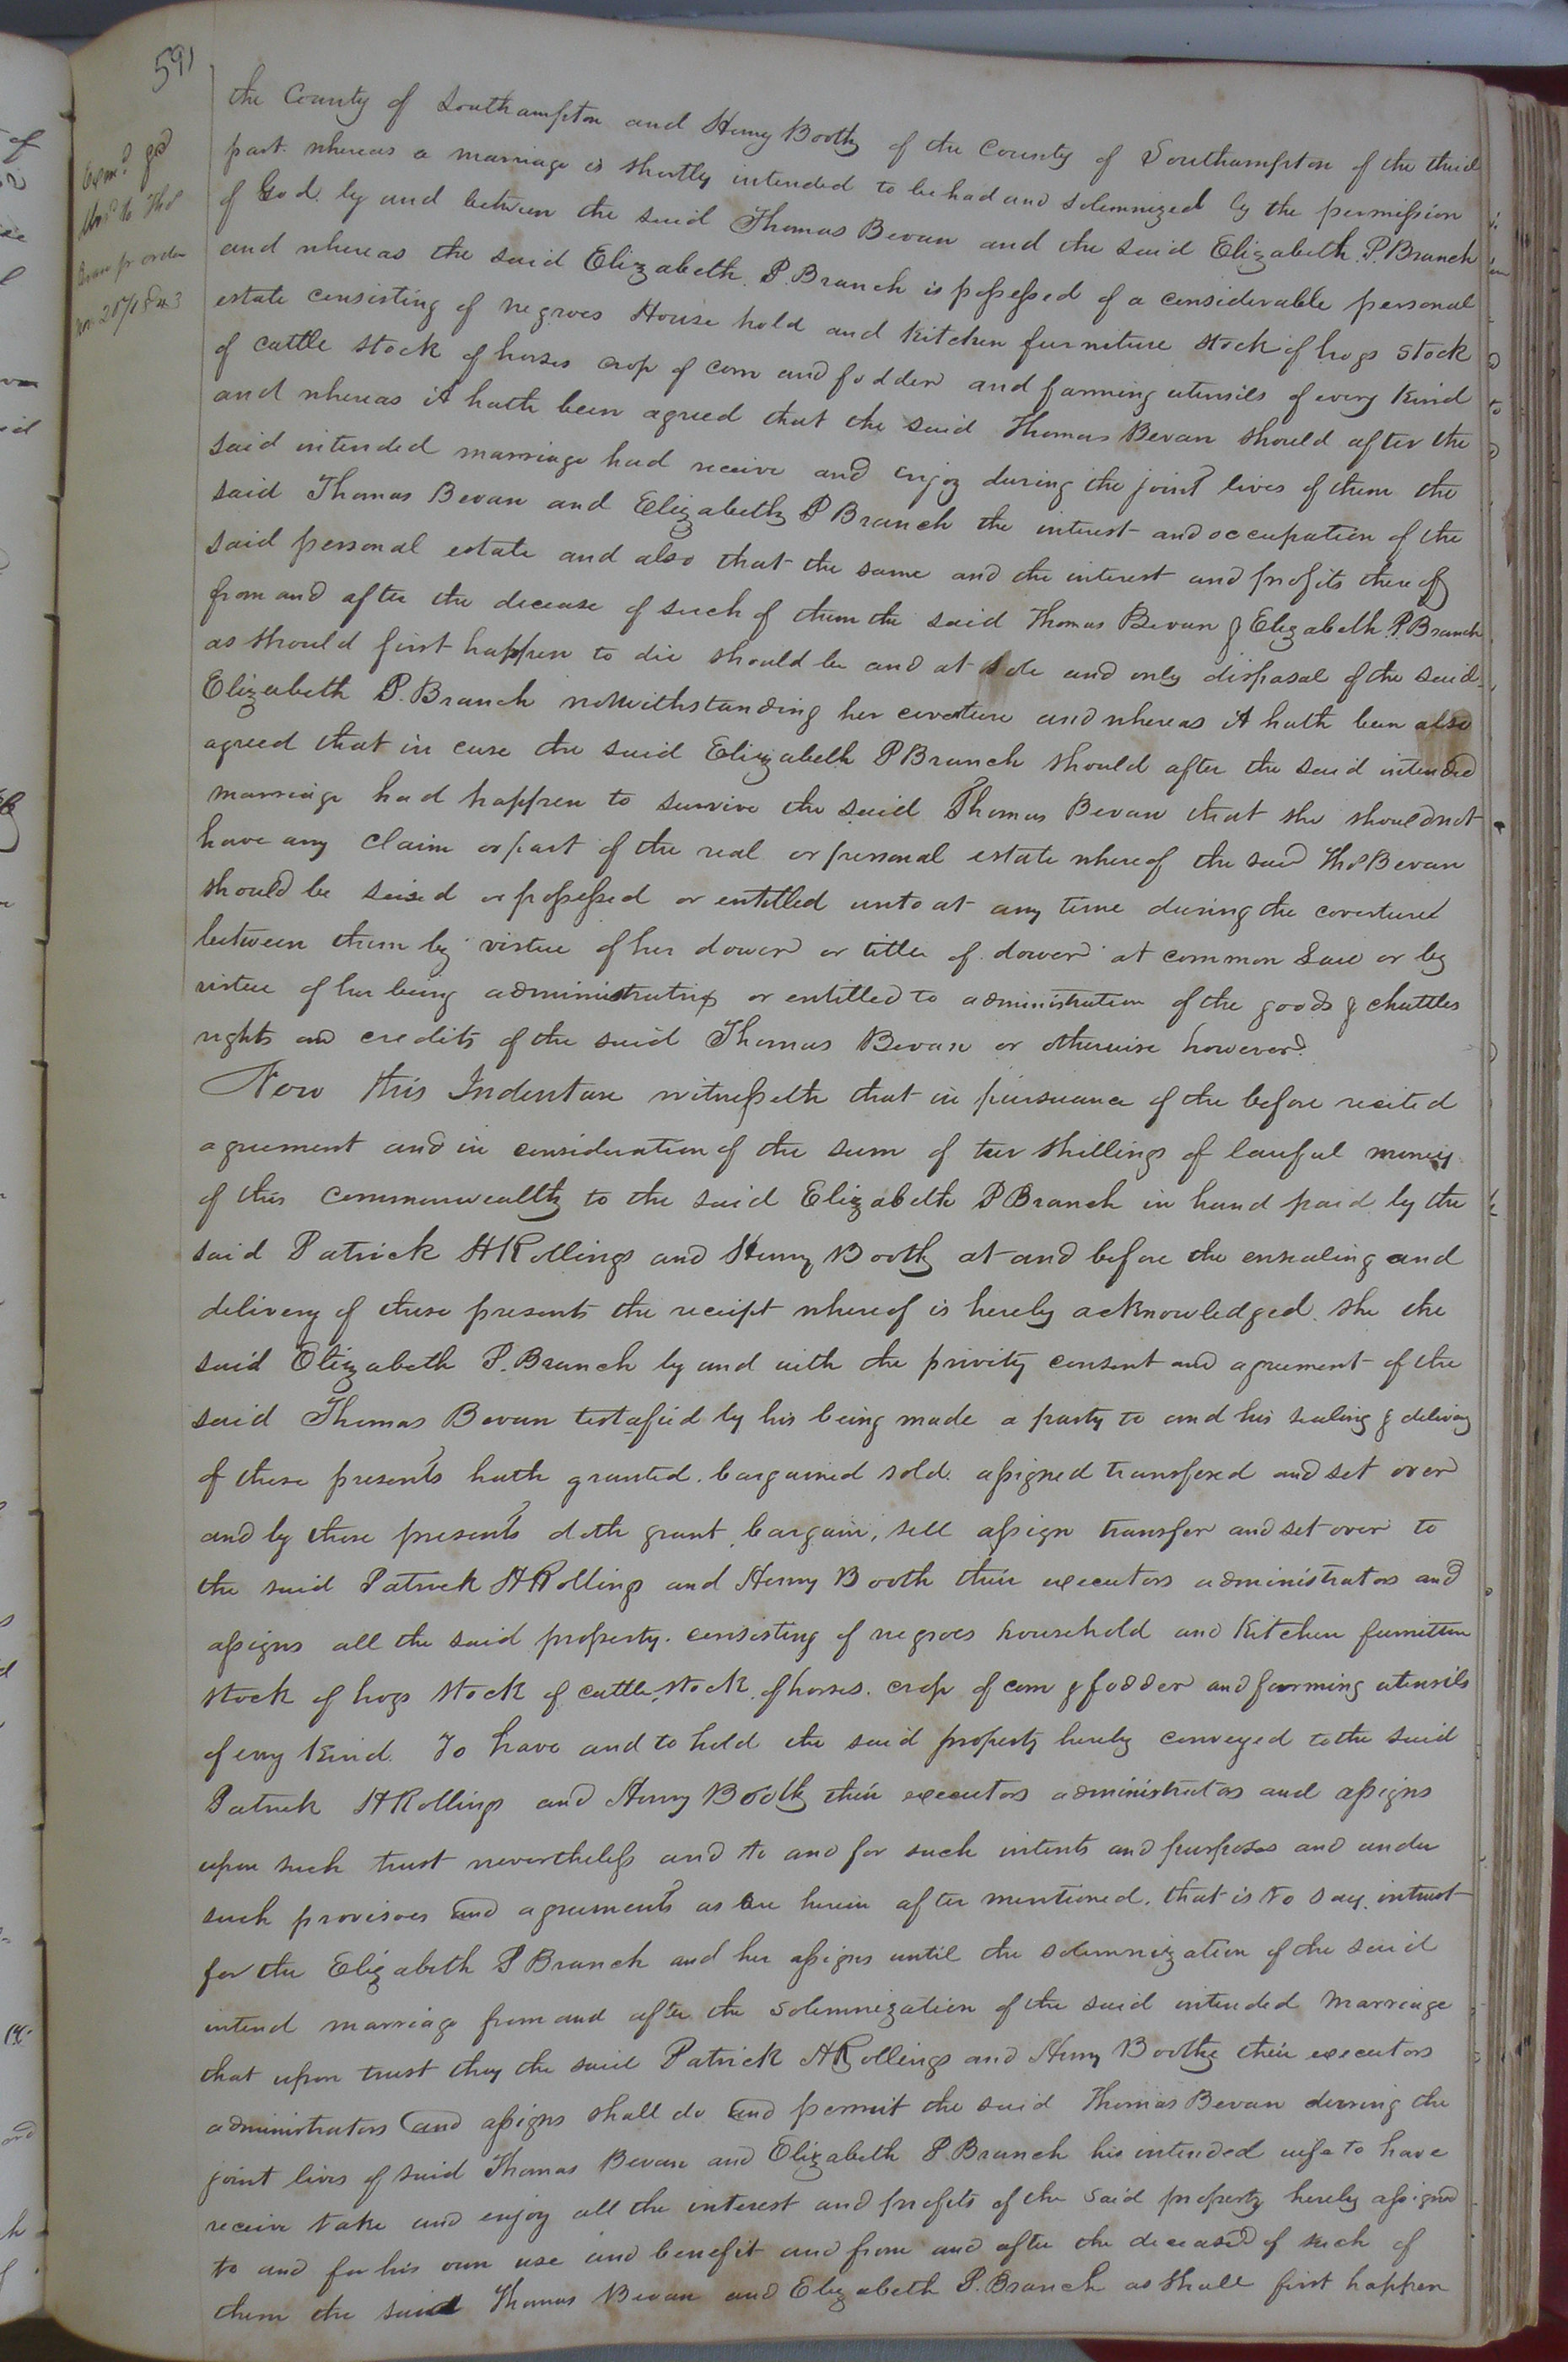 591
Exmd &d
to Tho
Bevan pr order
the County of Southampton and Henry Booth of the County of Southampton of the third
part. whereas a marriage is shortly intended to be had and solemnized by the permission
of God. by and between the said Thomas Bevan and the said Elizabeth. P. Branch
and whereas the said Elizabeth. P Branch is possessed of a considerable personal
estate consisting of negroes House hold and kitchen furniture stock of hogs stock
of cattle stock of horses crop of corn and fodder and farming utensils of every kind
and whereas it hath been agreed that the said Thomas Bevan should after the
said intended marriage had receive and enjoy during the joint lives of them the
said Thomas Bevan and Elizabeth P Branch the interest and occupation of the
said personal estate and also that the same and the interest and profits thereof
from and after the decease of such of them the said Thomas Bevan & Elizabeth P. Branch
as should first happen to die should be and at sole and only disposal of the said
Elizabeth P. Branch notwithstanding her coverture and whereas it hath been also
agreed that in case the said Elizabeth P Branch should after the said intended
marriage had happen to survive the said Thomas Bevan that she should not
have any claim or part of the real or personal estate whereof the said Tho Bevan
should be seised or possessed or entitled unto at any time during the coverture
between them by virtue of her dower or title of dower at common Law or by
virtue of her being administratrix or entitled to administration of the goods & chattles
rights and credits of the said Thomas Bevan or otherwise however.
Now this Indenture witnesseth that in pursuance of the before recited
agreement and in consideration of the sum of ten shillings of lawful money
of this commonwealth to the said Elizabeth P Branch in hand paid by the
said Patrick H Rollings and Henry Booth at and before the ensealing and
delivery of these presents the receipt whereof is hereby acknowledged. she the
said Elizabeth P. Branch by and with the privity consent and agreement of the
said Thomas Bevan testafied by his being made a party to and his sealing & delivery
of these presents hath granted. bargained sold. assigned transfered and set over
and by these presents doth grant, bargain, sell assign transfer and set over to
the said Patrick H Rollings and Henry Booth their executors administrators and
assigns all the said property. consisting of negroes household and kitchen furniture
stock of hogs stock of cattle, stock of horses. crop of corn & fodder and farming utensils
of every kind. To have and to hold the said property hereby conveyed to the said
Patrick H Rollings and Henry Booth their executors administrators and assigns
upon such trust nevertheless and to and for such intents and purposes and under
such provisoes and agreements as are herein after mentioned. that is to say. intrust
for the Elizabeth P Branch and her assigns until the solemnization of the said
intend marriage from and after the solemnization of the said intended marriage
that upon trust they the said Patrick H Rollings and Henry Booth their executors
administrators and assigns shall do and permit the said Thomas Bevan during the
joint lives of said Thomas Bevan and Elizabeth P. Branch his intended wife to have
receive take and enjoy all the interest and profits of the said property hereby assigned
to and for his own use and benefit and from and after the decease of such of
them the said Thomas Bevan and Elizabeth P. Branch as shall first happen